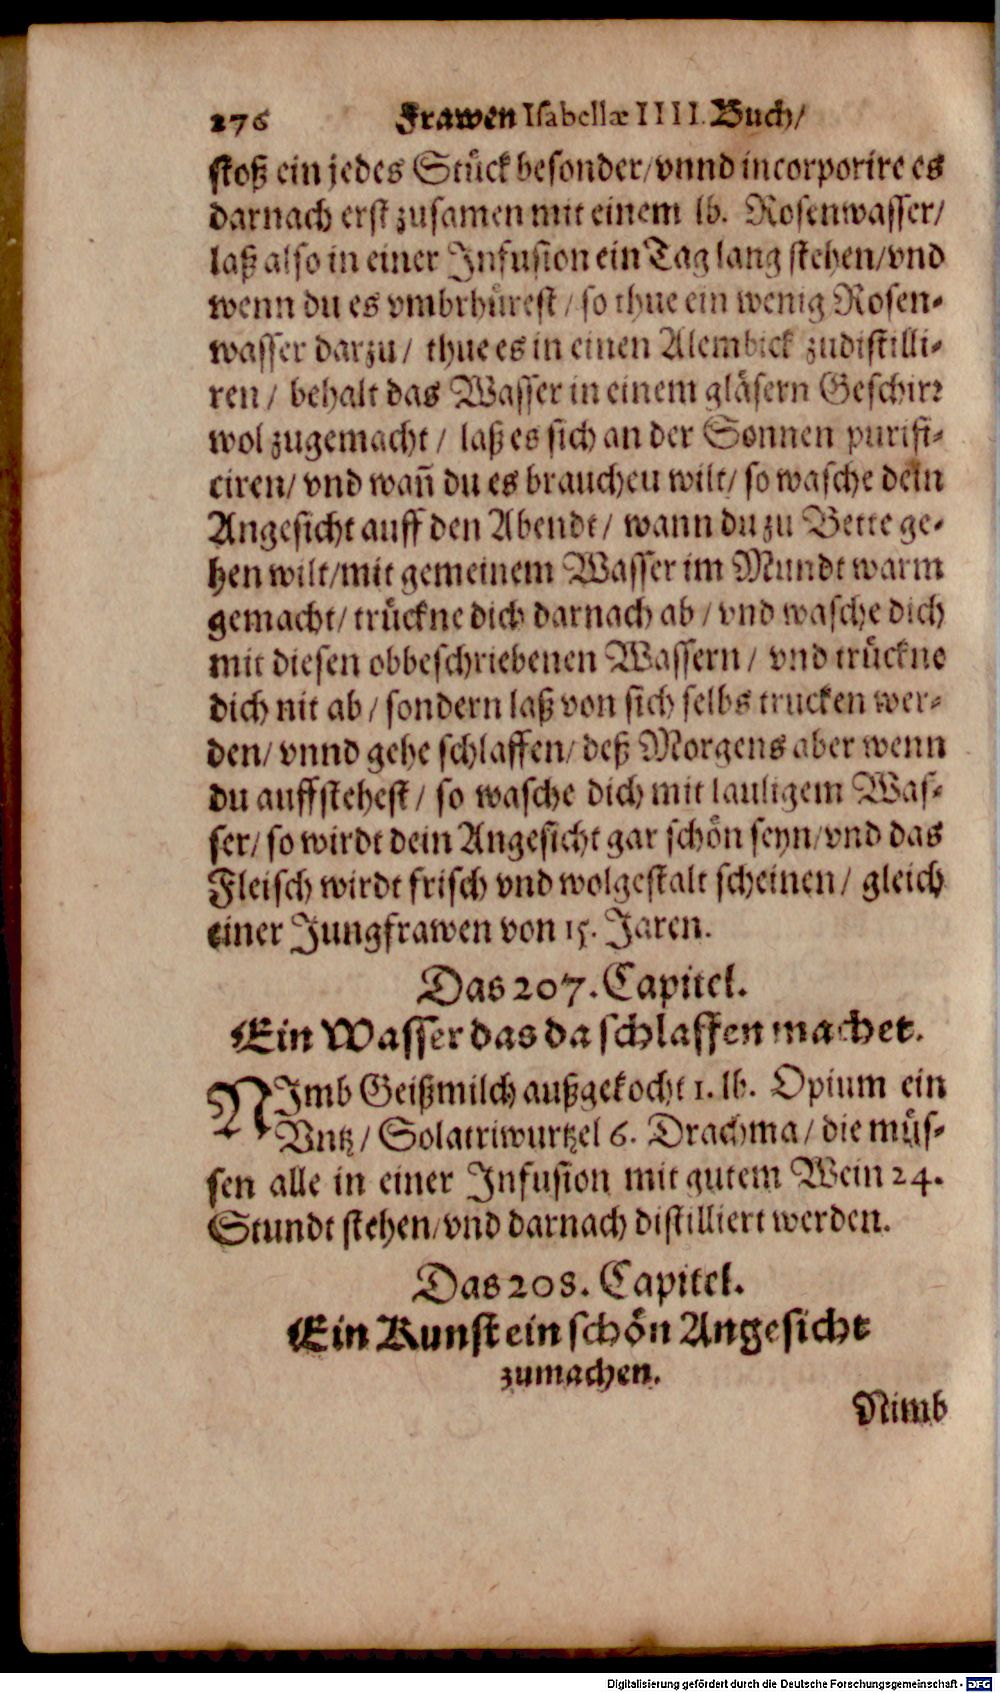 276 Frawen Isabellæ IIII. Buch/
stoß ein jedes Stůck besonder/vnnd incorporire es
darnach erst zusamen mit einem lb. Rosenwasser/
laß also in einer Infusion ein Tag lang stehen/vnd
wenn du es vmbrhůrest/ so thue ein wenig Rosen-
wasser darzu/ thue es in einen Alembick zudistilli-
ren/ behalt das Wasser in einem gläsern Geschirr
wol zugemacht/ laß es sich an der Sonnen purifi-
ciren/ vnd wañ du es braucheu wilt/ so wasche dein
Angesicht auff den Abendt/ wann du zu Bette ge-
hen wilt/mit gemeinem Wasser im Mundt warm
gemacht/ trůckne dich darnach ab/ vnd wasche dich
mit diesen obbeschriebenen Wassern/ vnd trůckne
dich nit ab/ sondern laß von sich selbs trucken wer-
den/ vnnd gehe schlaffen/ deß Morgens aber wenn
du auffstehest/ so wasche dich mit lauligem Was-
ser/ so wirdt dein Angesicht gar schön seyn/vnd das
Fleisch wirdt frisch vnd wolgestalt scheinen/ gleich
einer Jungfrawen von 15. Jaren.
Das 207. Capitel.
Ein Wasser das da schlaffen machet.
NImb Geißmilch außgekocht 1. lb. Opium ein
Vntz/ Solatriwurtzel 6. Drachma/ die můs-
sen alle in einer Infusion mit gutem Wein 24.
Stundt stehen/vnd darnach distilliert werden.
Das 208. Capitel.
Ein Kunst ein schön Angesicht
zumachen.
Nimb
Digitalisierung gefördert durch die Deutsche Forschungsgemeinschaft - DFG